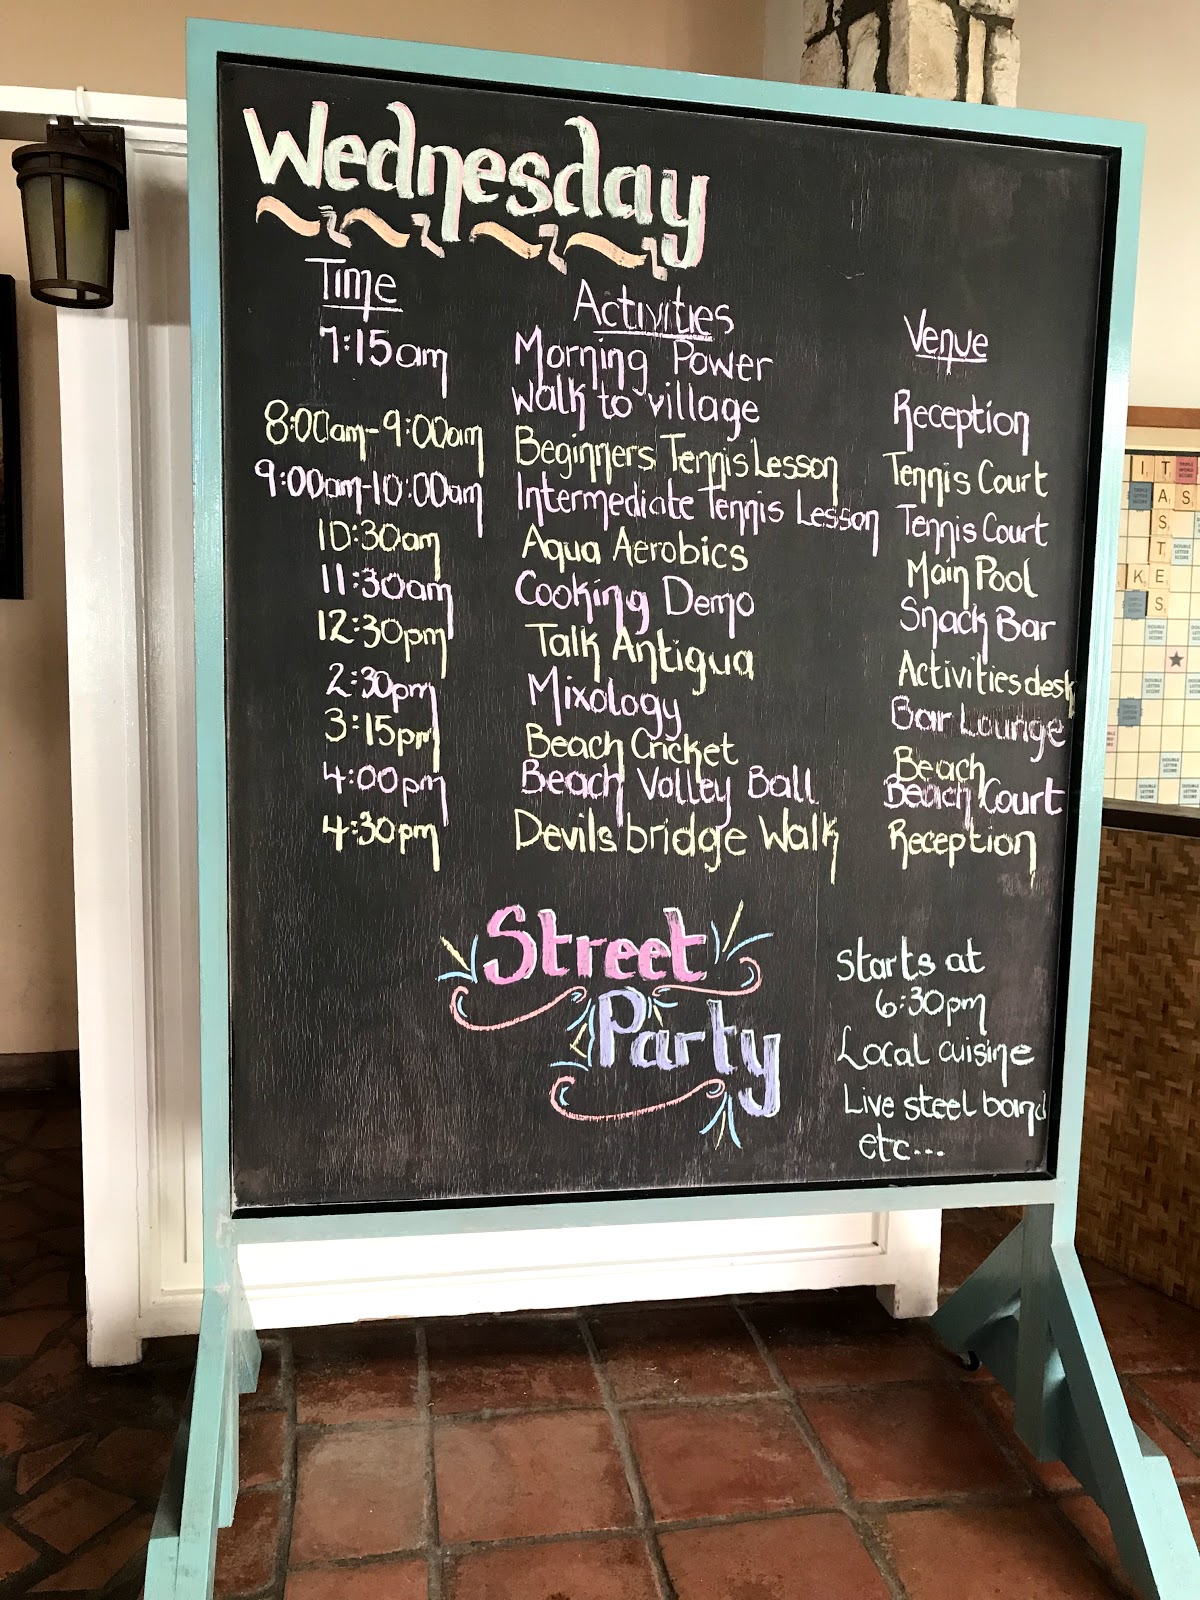 Wednesday
Time Activities Venue
7:15am Morning Power
Walk to village Reception
8:00am-9:00am Beginners Tennis Lesson Tennis Court
9:00am-10:00am Intermediate Tennis Lesson Tennis Court
10:30am Aqua Aerobics Main Pool
11:30am Cooking Demo Snack Bar
12:30pm Talk Antigua Activities desk
2:30pm Mixology Bar Lounge
3:15pm Beach Cricket Beach
4:00pm Beach Volley Ball Beach Court
4:30pm Devils bridge Walk Reception
Street
Party
Starts at
6:30pm
Local cuisine
Live steel band
etc...